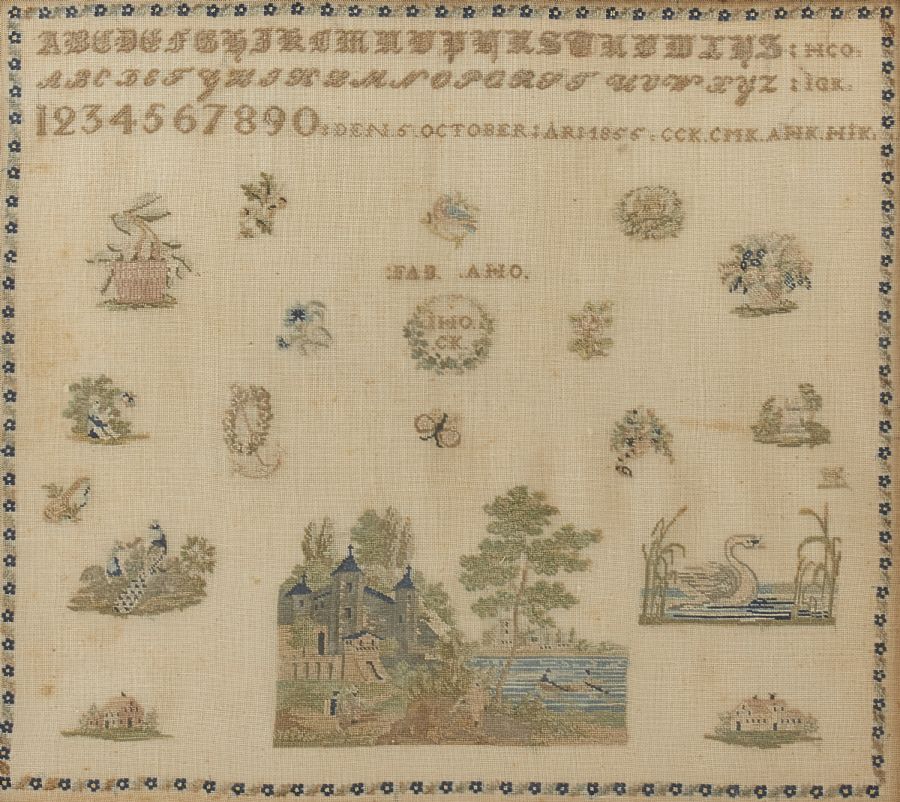 ABCDEFGHIKLMNOPQRSTUVWXYZ : HCO.
ABCDEFGHIKLMNOPQRST UVWXYZ : IGK.
1234567890 : DEN . 5 . OCTOBER : ÅRI 1855 . CCK . CMK . AHK . HIK .
: FAB . AHO .
IHO .
CK .